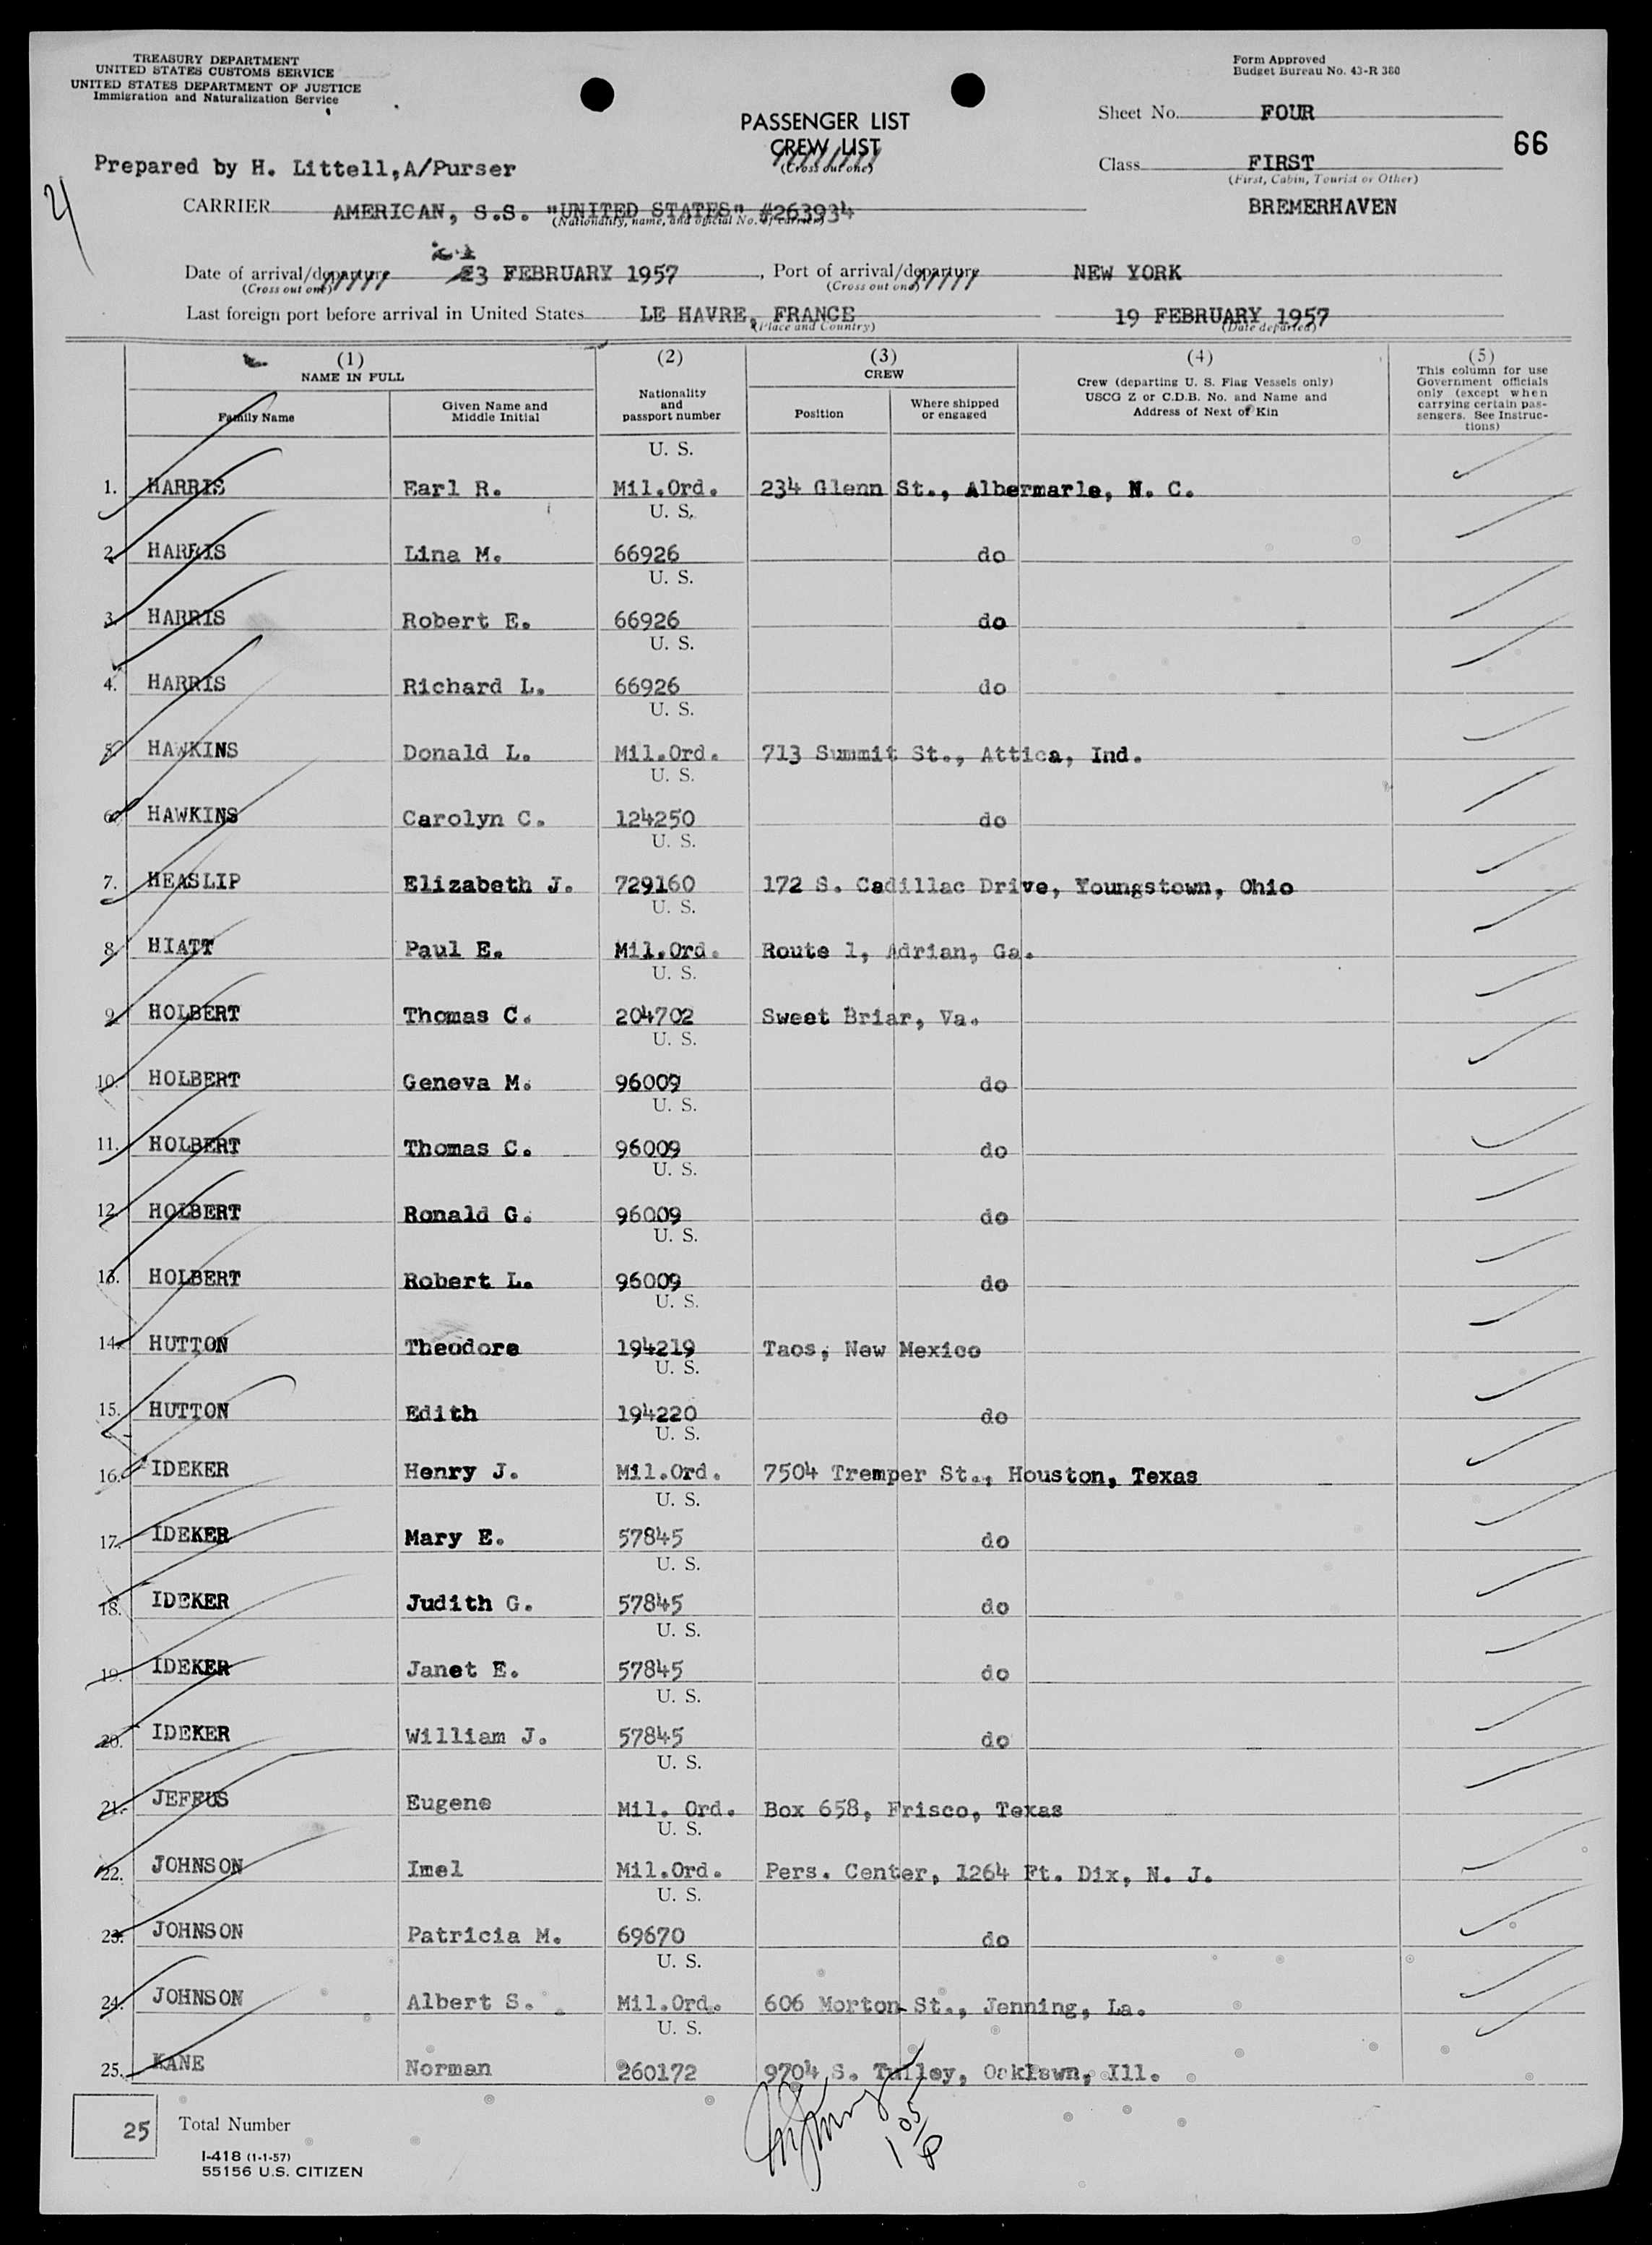 TREASURY DEPARTMENT
UNITED STATES CUSTOMS SERVICE
UNITED STATES DEPARTMENT OF JUSTICE
Immigration and Naturalization Service
Form Approved
Budget Bureau No. 43-R 360
PASSENGER LIST
CREW LIST
(Cross out one)
Sheet No. FOUR
66
Prepared by H. Littell,A/Purser
Class FIRST
(First, Cabin, Tourist or Other)
CARRIER AMERICAN, S.S. "UNITED STATES" #263934
(Nationality, name, and official No. of carrier)
BREMERHAVEN
Date of arrival/departure 23 FEBRUARY 1957, Port of arrival/departure NEW YORK
(Cross out one) (Cross out one)
Last foreign port before arrival in United States LE HAVRE, FRANCE 19 FEBRUARY 1957
(Place and Country) (Date departed)
(1) (2) (3) (4) (5)
NAME IN FULL
Family Name
Given Name and Middle Initial
Nationality and passport number
CREW
Position
Where shipped or engaged
Crew (departing U. S. Flag Vessels only)
USCG Z or C.D.B. No. and Name and
Address of Next of Kin
This column for use
Government officials
only (except when
carrying certain pas-
sengers. See Instruc-
tions)
U. S.
1. HARRIS Earl R. Mil.Ord. 234 Glenn St., Albermarle, N. C.
U. S.
2. HARRIS Lina M. 66926 do
U. S.
3. HARRIS Robert E. 66926 do
U. S.
4. HARRIS Richard L. 66926 do
U. S.
5. HAWKINS Donald L. Mil.Ord. 713 Summit St., Attica, Ind.
U. S.
6. HAWKINS Carolyn C. 124250 do
U. S.
7. HEASLIP Elizabeth J. 729160 172 S. Cadillac Drive, Youngstown, Ohio
U. S.
8. HIATT Paul E. Mil.Ord. Route 1, Adrian, Ga.
U. S.
9. HOLBERT Thomas C. 204702 Sweet Briar, Va.
U. S.
10. HOLBERT Geneva M. 96009 do
U. S.
11. HOLBERT Thomas C. 96009 do
U. S.
12. HOLBERT Ronald G. 96009 do
U. S.
13. HOLBERT Robert L. 96009 do
U. S.
14. HUTTON Theodore 194219 Taos, New Mexico
U. S.
15. HUTTON Edith 194220 do
U. S.
16. IDEKER Henry J. Mil.Ord. 7504 Tremper St., Houston, Texas
U. S.
17. IDEKER Mary E. 57845 do
U. S.
18. IDEKER Judith G. 57845 do
U. S.
19. IDEKER Janet E. 57845 do
U. S.
20. IDEKER William J. 57845 do
U. S.
21. JEFFUS Eugene Mil. Ord. Box 658, Frisco, Texas
U. S.
22. JOHNSON Imel Mil.Ord. Pers. Center, 1264 Ft. Dix, N. J.
U. S.
23. JOHNSON Patricia M. 69670 do
U. S.
24. JOHNSON Albert S. Mil.Ord. 606 Morton St., Jenning, La.
U. S.
25. KANE Norman 260172 9704 S. Tulley, Oaklawn, Ill.
25 Total Number
I-418 (1-1-57)
55156 U.S. CITIZEN